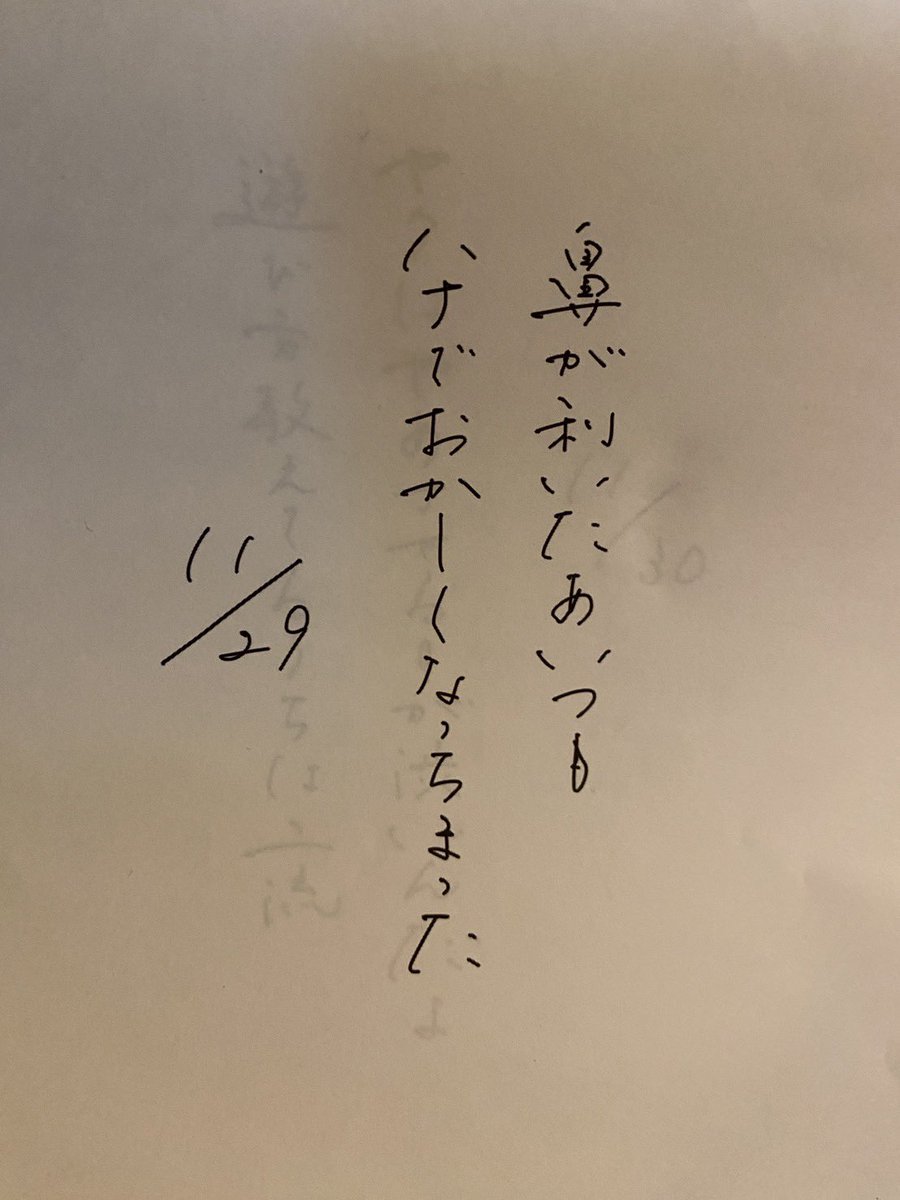 鼻が利いたあいつも
ハナでおかしくなっちまった
11/29